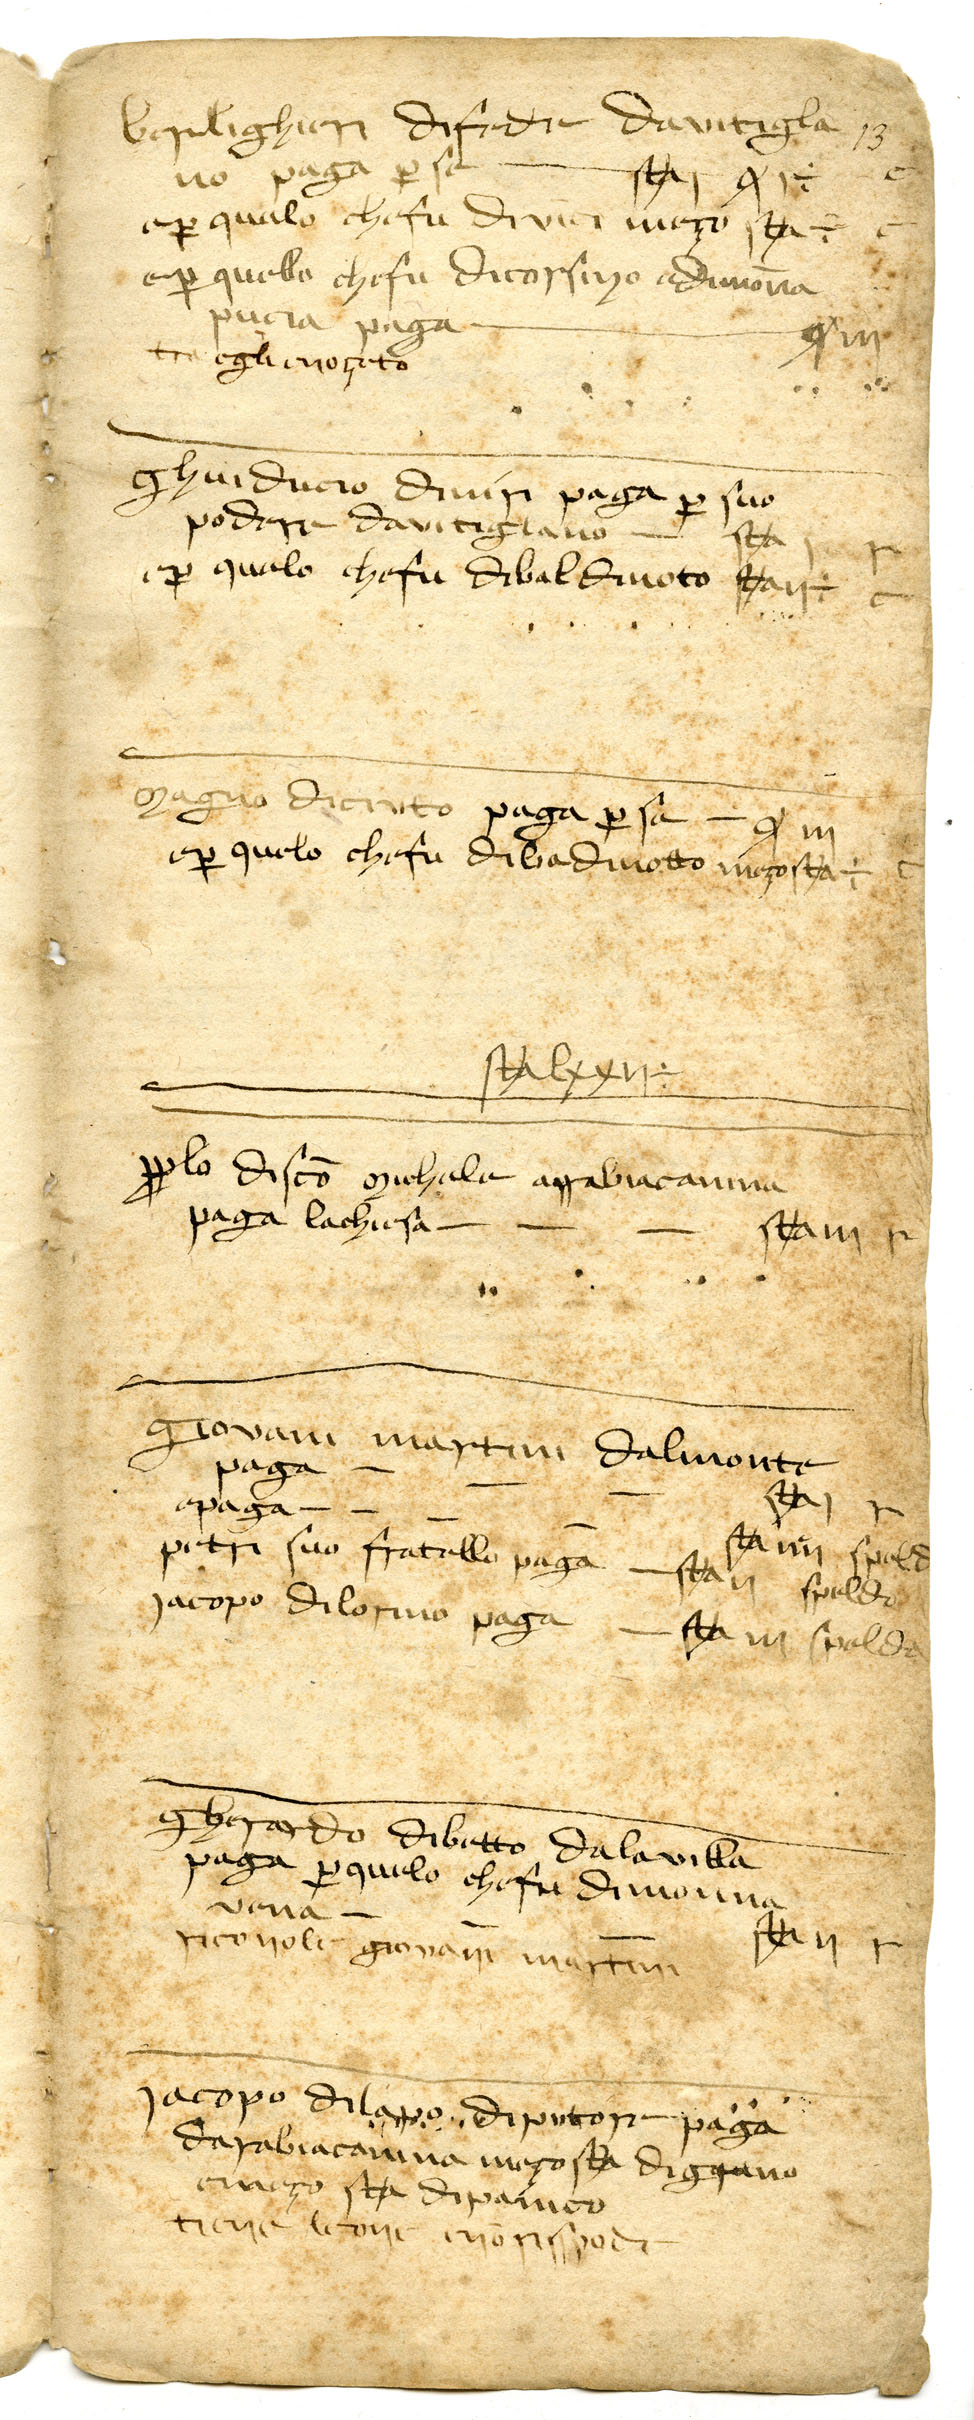 berlighieri difede davitigla 13
no paga p se — sta j q r c
e p quelo chefu divici mezo sta c
e p quello chefu dicorsino edimona
pucia paga — q iij
tra egli enozeto
ghuiducio diniri paga p suo
podere davitiglano — sta j r
e p quelo chefu dibaldinoto sta ij c
Magno paga p se — q iij
e p quelo chefu dibadinotto mezo sta c
sta lxxij
pplo discō Michele arrabiacanina
paga lachiesa — — — sta iij r
giovani martini dalmonte
paga — — — sta j r
epaga — — — sta iiij speld
petri suo fratello paga — sta ij spelda
jacopo dilorino paga — sta iij spelda
gherardo dibetto dalavilla
paga p quelo chefu dimonna
vena — — sta ij r
giovani martini
jacopo dilapo diputore paga
darabiacanina mezo sta digrano
emezo sta dipanico
tiene leone enōrisspode